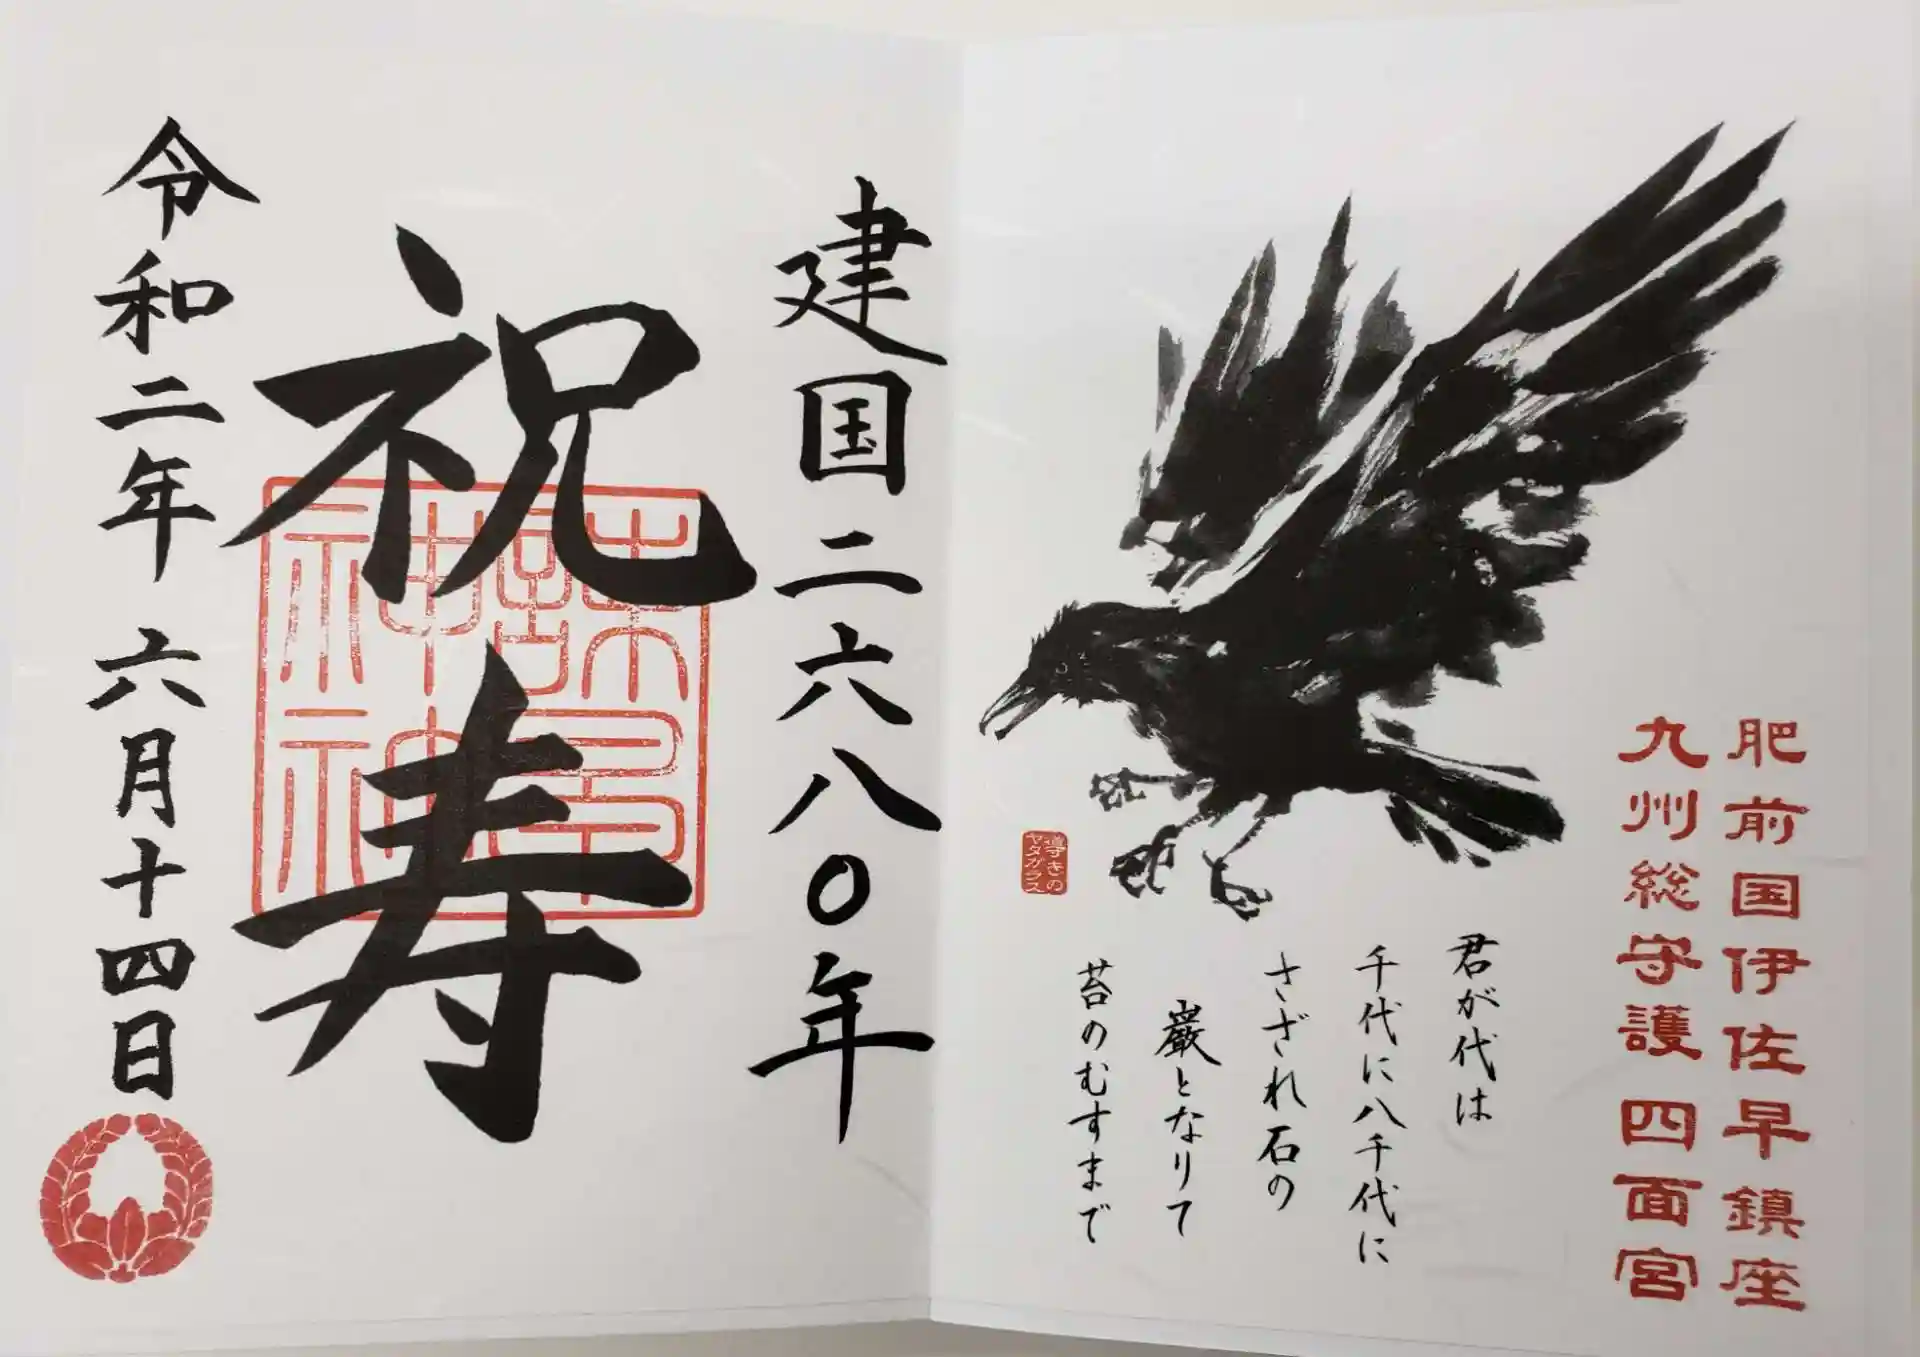 肥前国伊佐早鎮座
九州総守護 四面宮
君が代は
千代に八千代に
さざれ石の
巌となりて
苔のむすまで
導きの
ヤタガラス
建国二六八〇年
祝寿
諫早
神社
令和二年 六月十四日